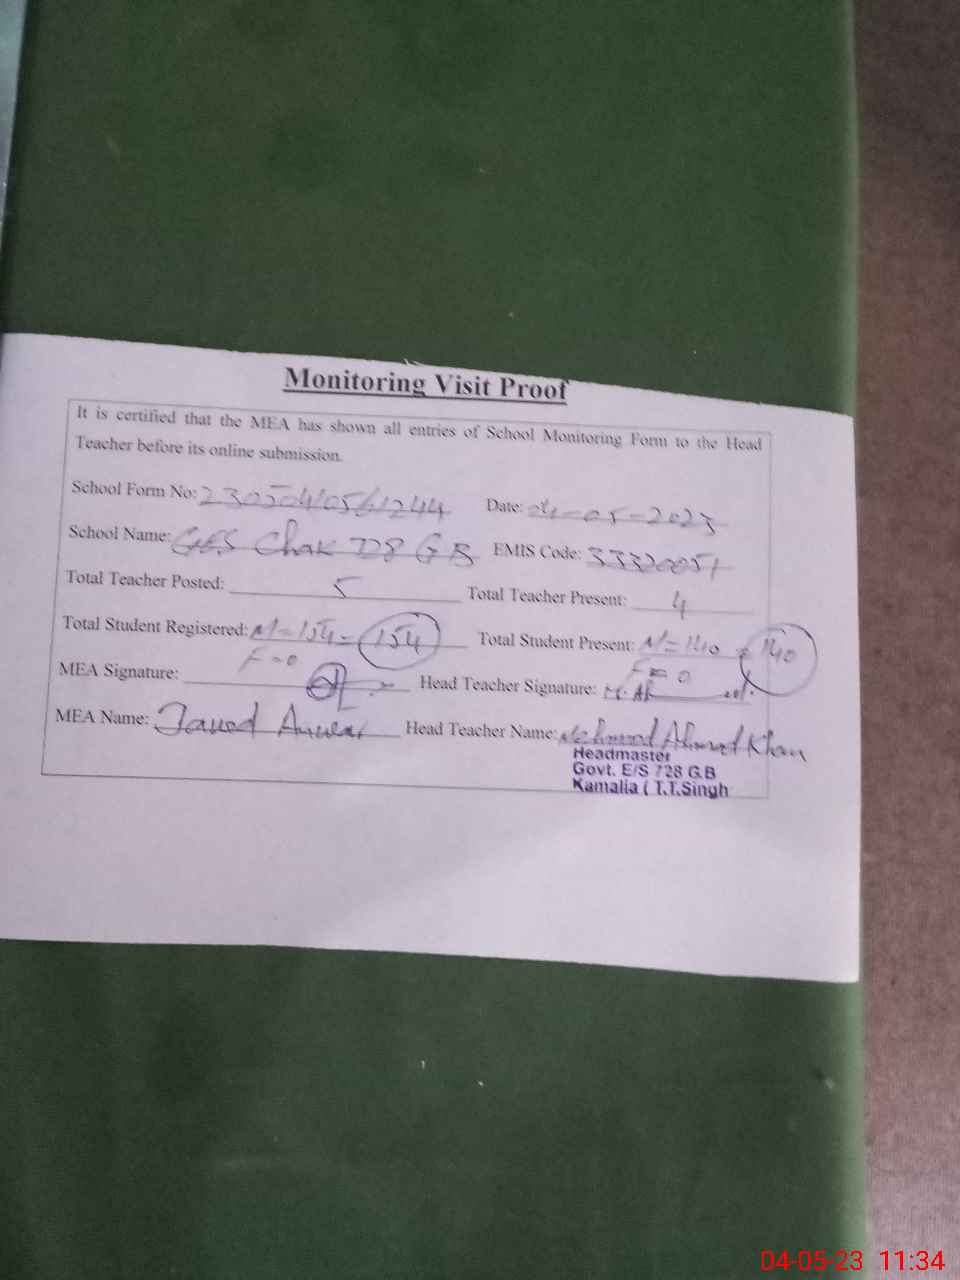 Monitoring Visit Proof
It is certified that the MEA has shown all entries of School Monitoring Form to the Head
Teacher before its online submission.
School Form No: 2305040561244 Date: 04-05-2023
School Name: GES Chak 728 GB EMIS Code: 33320051
Total Teacher Posted: 5 Total Teacher Present: 4
Total Student Registered: M=154 = 154 Total Student Present: M=140 = 140
F=0 F=0
MEA Signature: Head Teacher Signature:
MEA Name: Javed Anwar Head Teacher Name: Mehmood Ahmad Khan
Headmaster
Govt. E/S 728 G.B
Kamalia ( T.T.Singh
04-05-23 11:34